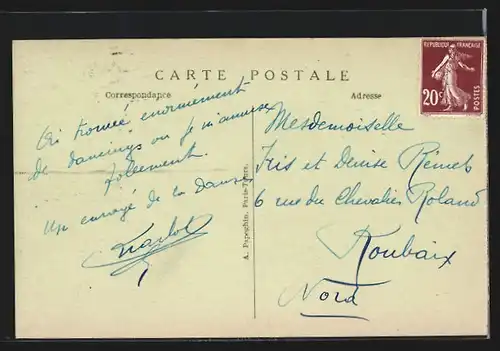 CARTE POSTALE
Correspondance
Ai trouvé énormément
de dancings où je m'amuse
follement.
Un enragé de la Danse
A. Papeghin, Paris-Tours.
REPUBLIQUE FRANÇAISE
20c
POSTES
Adresse
Mesdemoiselle
Iris et Denise
6 rue du Chevalier Roland
Roubaix
Nord